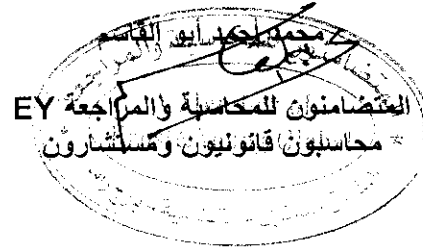 محمد أحمد أبو القاسم
المتضامنون للمحاسبة والمراجعة EY
محاسبون قانونيون ومستشارون